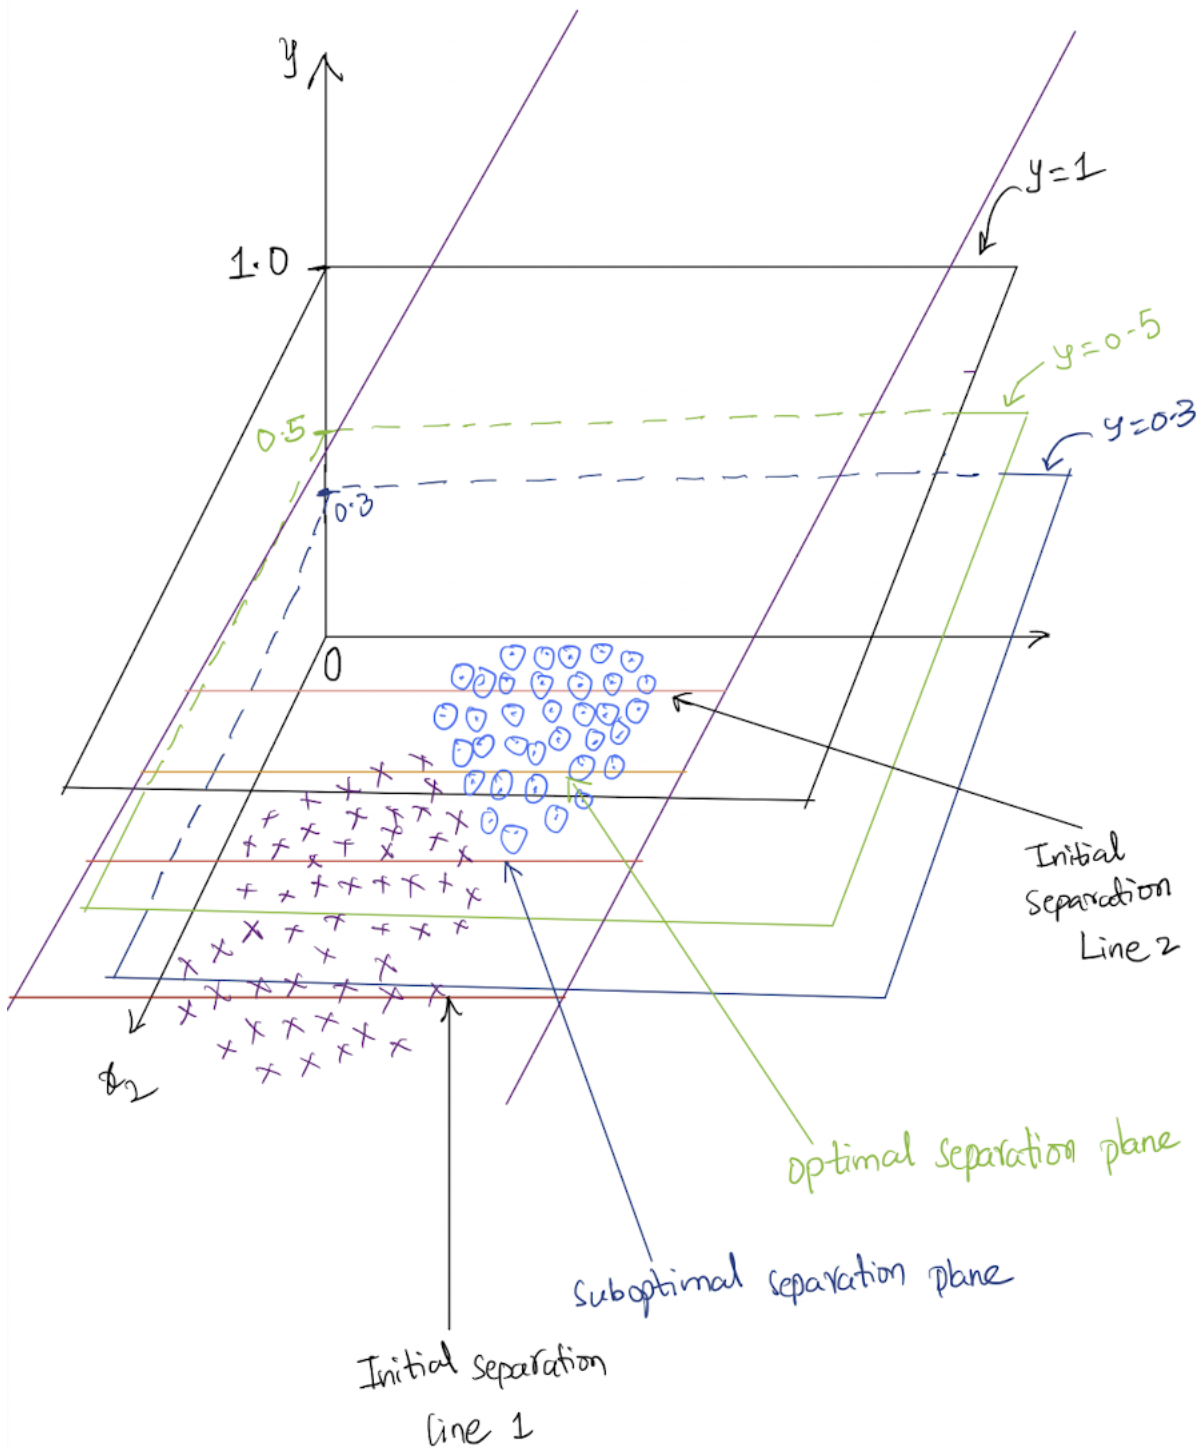 y
y=1
1.0
y=0.5
0.5
y=0.3
0.3
0
Initial
separation
Line 2
x2
optimal separation plane
suboptimal separation plane
Initial separation
line 1